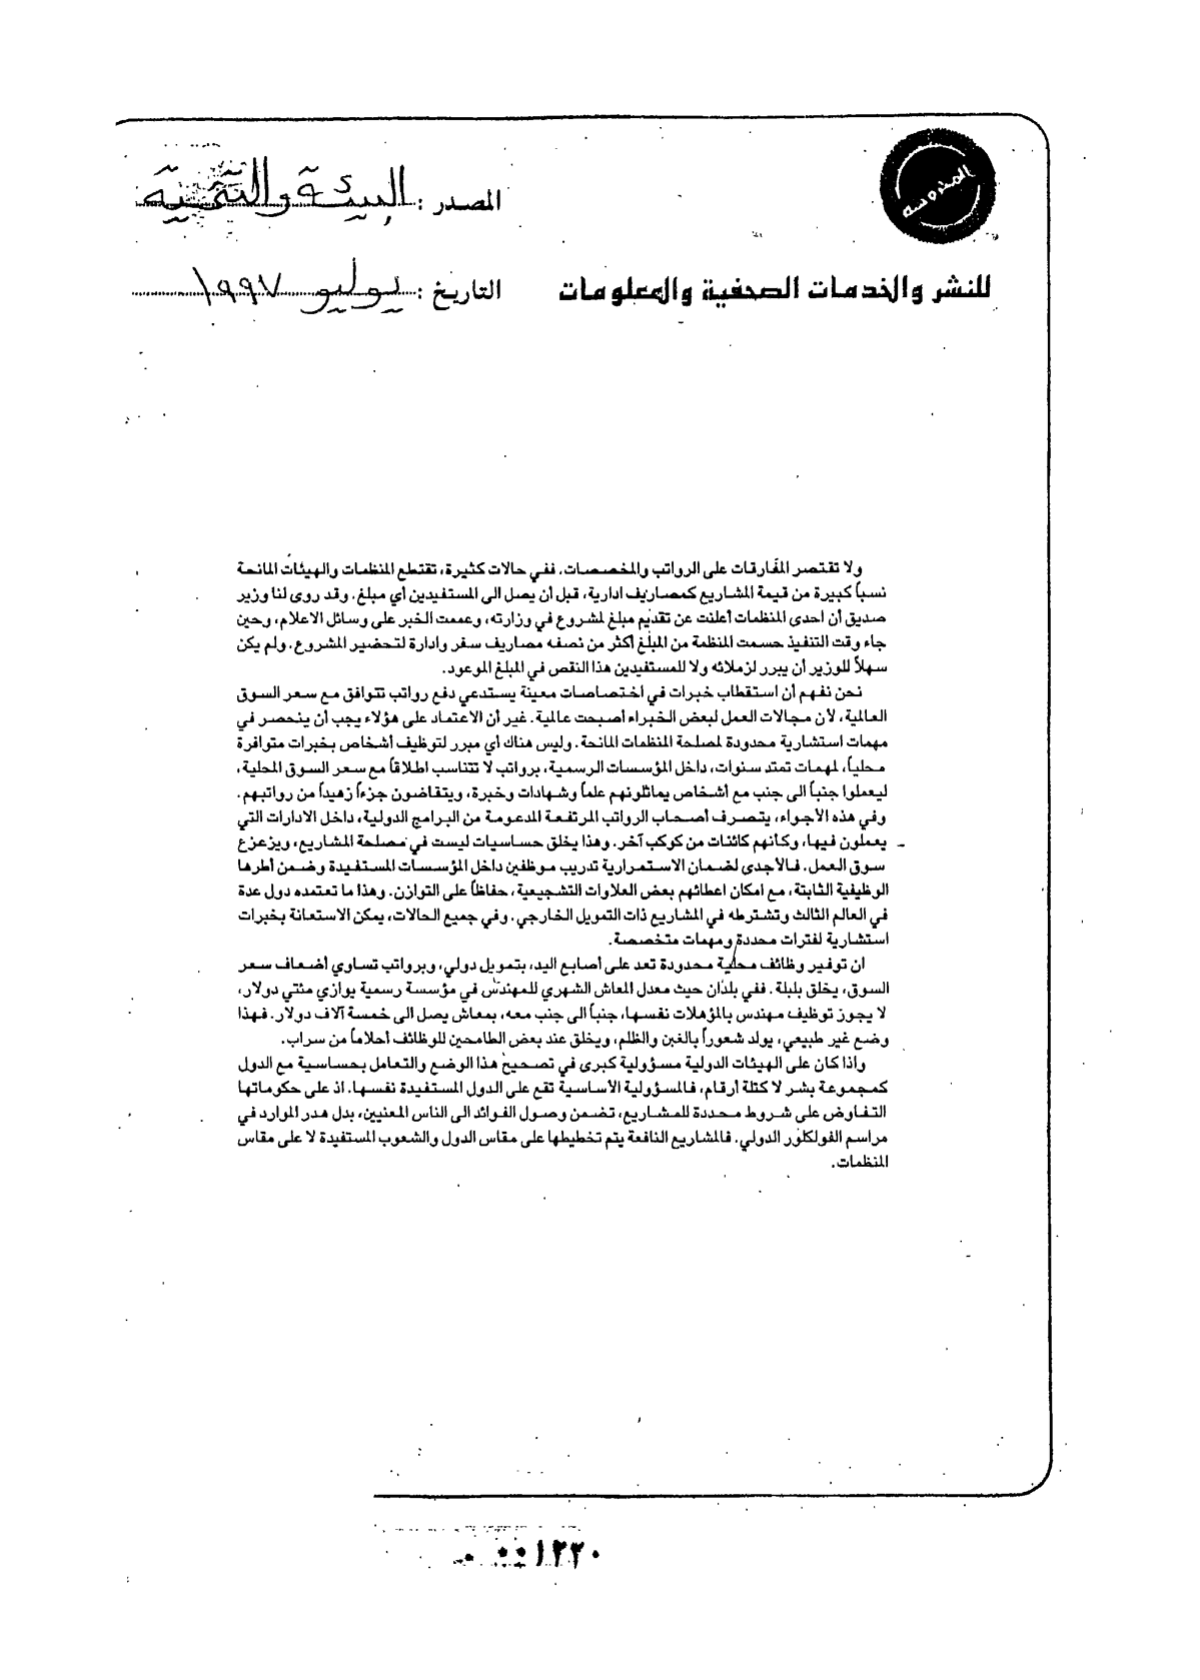 المحروسه
المصدر : البيئة والتنمية
للنشر والخدمات الصحفية والمعلومات
التاريخ : يوليو ١٩٩٧
ولا تقتصر المفارقات على الرواتب والمخصصات. ففي حالات كثيرة، تقتطع المنظمات والهيئات المانحة
نسباً كبيرة من قيمة المشاريع كمصاريف ادارية، قبل أن يصل الى المستفيدين أي مبلغ. وقد روى لنا وزير
صديق أن احدى المنظمات أعلنت عن تقديم مبلغ لمشروع في وزارته، وعممت الخبر على وسائل الاعلام، وحين
جاء وقت التنفيذ حسمت المنظمة من المبلغ أكثر من نصفه مصاريف سفر وادارة لتحضير المشروع. ولم يكن
سهلاً للوزير أن يبرر لزملائه ولا للمستفيدين هذا النقص في المبلغ الموعود.
نحن نفهم أن استقطاب خبرات في اختصاصات معينة يستدعي دفع رواتب تتوافق مع سعر السوق
العالمية، لأن مجالات العمل لبعض الخبراء أصبحت عالمية. غير أن الاعتماد على هؤلاء يجب أن ينحصر في
مهمات استشارية محدودة لمصلحة المنظمات المانحة. وليس هناك أي مبرر لتوظيف أشخاص بخبرات متوافرة
محلياً، لمهمات تمتد سنوات، داخل المؤسسات الرسمية، برواتب لا تتناسب اطلاقاً مع سعر السوق المحلية،
ليعملوا جنباً الى جنب مع أشخاص يماثلونهم علماً وشهادات وخبرة، ويتقاضون جزءاً زهيداً من رواتبهم.
وفي هذه الأجواء، يتصرف أصحاب الرواتب المرتفعة المدعومة من البرامج الدولية، داخل الادارات التي
يعملون فيها، وكأنهم كائنات من كوكب آخر. وهذا يخلق حساسيات ليست في مصلحة المشاريع، ويزعزع
سوق العمل. فالأجدى لضمان الاستمرارية تدريب موظفين داخل المؤسسات المستفيدة وضمن أطرها
الوظيفية الثابتة، مع امكان اعطائهم بعض العلاوات التشجيعية، حفاظاً على التوازن. وهذا ما تعتمده دول عدة
في العالم الثالث وتشترطه في المشاريع ذات التمويل الخارجي. وفي جميع الحالات، يمكن الاستعانة بخبرات
استشارية لفترات محددة ومهمات متخصصة.
ان توفير وظائف محلية محدودة تعد على أصابع اليد، بتمويل دولي، وبرواتب تساوي أضعاف سعر
السوق، يخلق بلبلة. ففي بلدان حيث معدل المعاش الشهري للمهندس في مؤسسة رسمية يوازي مئتي دولار،
لا يجوز توظيف مهندس بالمؤهلات نفسها، جنباً الى جنب معه، بمعاش يصل الى خمسة آلاف دولار. فهذا
وضع غير طبيعي، يولد شعوراً بالغبن والظلم، ويخلق عند بعض الطامحين للوظائف أحلاماً من سراب.
واذا كان على الهيئات الدولية مسؤولية كبرى في تصحيح هذا الوضع والتعامل بحساسية مع الدول
كمجموعة بشر لا كتلة أرقام، فالمسؤولية الأساسية تقع على الدول المستفيدة نفسها. اذ على حكوماتها
التفاوض على شروط محددة للمشاريع، تضمن وصول الفوائد الى الناس المعنيين، بدل هدر الموارد في
مراسم الفولكلور الدولي. فالمشاريع النافعة يتم تخطيطها على مقاس الدول والشعوب المستفيدة لا على مقاس
المنظمات.
١٢٢٠